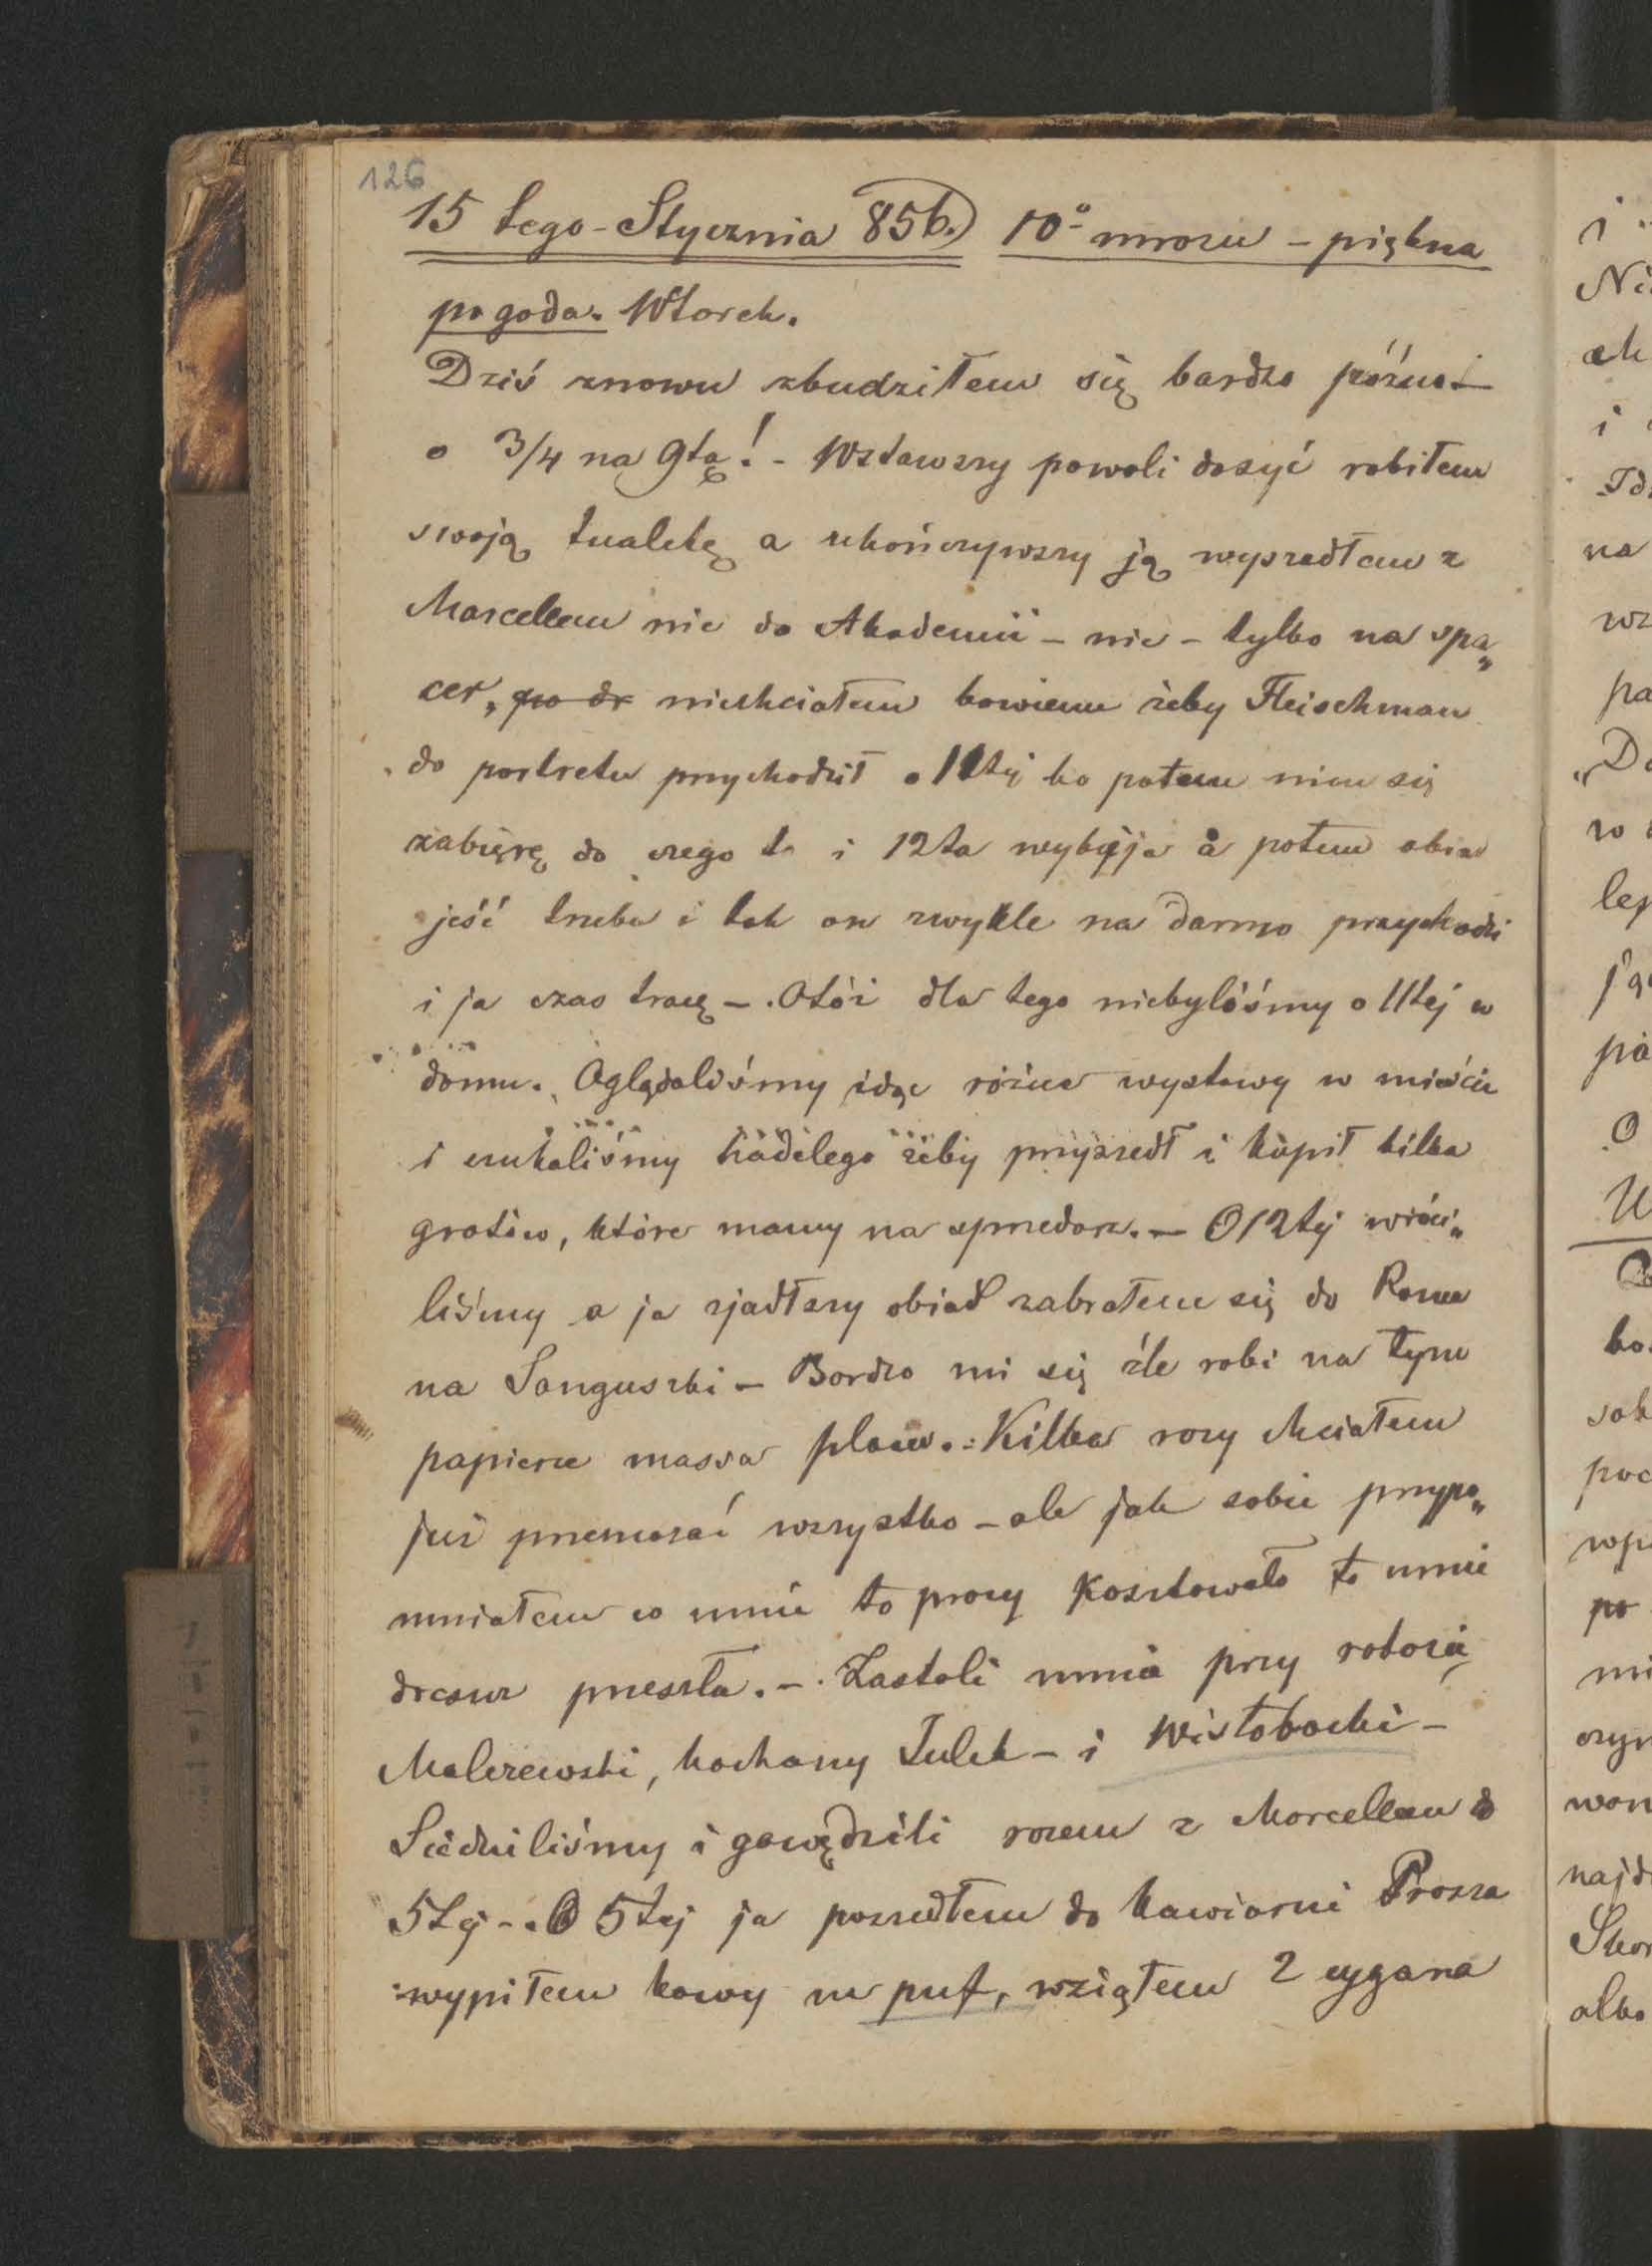 126
15tego-Stycznia 856.) 10° mrozu - piękna
pogoda. Wtorek.
Dziś znowu zbudziłem się bardzo późno -
o 3/4 na 9tą! - Wstawszy powoli dosyć robiłem
swoją tualetę a ukończywszy ją wyszedłem z
Marcellem nie do Akademii - nie - tylko na spa„
cer, po dr niechciałem bowiem żeby Fleischman
do portretu przychodził o 11tej bo potem nim się
zabięrę do czego to i 12ta wybija a potem obiad
jeść trzeba i tak on zwykle na darmo przychodzi
i ja czas tracę -. Otóż dla tego niebyliśmy o 11tej w
domu. Oglądaliśmy idąc różne wystawy w mieście
i szukaliśmy żeby przyszedł i kupił kilka
grotów, które mamy na sprzedarz. - O 12tej wróci„
liśmy a ja zjadłszy obiad zabrałem się do
na Sanguszki - Bardzo mi się źle robi na tym
papierze massa plam. Kilka razy chciałem
już przemazać wszystko - ale jak sobie przypo„
mniałem co mnie to pracy kosztowało to mnie
przeszła. - Zastali mnie przy robocie
Malczewski, kochany Julek - i Wisłobocki -
Siedzieliśmy i gawędzili razem z Marcellem do
5tej -. O 5tej ja poszedłem do kawiarni Prosza
wypiłem kawy na puf, wziąłem 2 cygara
i
Ni
ch
i
Id
na
wz
pa
„Do
w
lep
pa
O
sob
poc
wp
po
mi
czyn
won
najd
albo